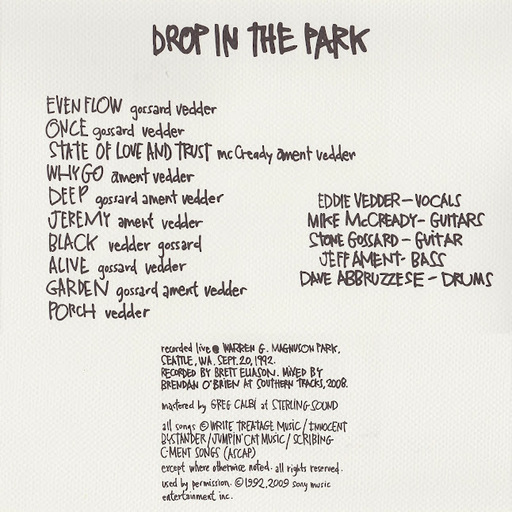 DROP IN THE PARK
EVEN FLOW gossard vedder
ONCE gossard vedder
STATE OF LOVE AND TRUST mcCready ament vedder
WHY GO ament vedder
DEEP gossard ament vedder
JEREMY ament vedder
BLACK vedder gossard
ALIVE gossard vedder
GARDEN gossard ament vedder
PORCH vedder
EDDIE VEDDER – VOCALS
MIKE McCREADY – GUITARS
STONE GOSSARD – GUITAR
JEFF AMENT – BASS
DAVE ABBRUZZESE – DRUMS
recorded live @ WARREN G. MAGNUSON PARK,
SEATTLE, WA. SEPT. 20, 1992.
RECORDED BY BRETT ELIASON. MIXED BY
BRENDAN O'BRIEN AT SOUTHERN TRACKS, 2008.
mastered by GREG CALBI at STERLING SOUND
all songs © WRITE TREATAGE MUSIC / INNOCENT
BYSTANDER / JUMPIN' CAT MUSIC / SCRIBING
C-MENT SONGS (ASCAP)
except where otherwise noted. all rights reserved.
used by permission. © 1992, 2009 sony music
entertainment inc.